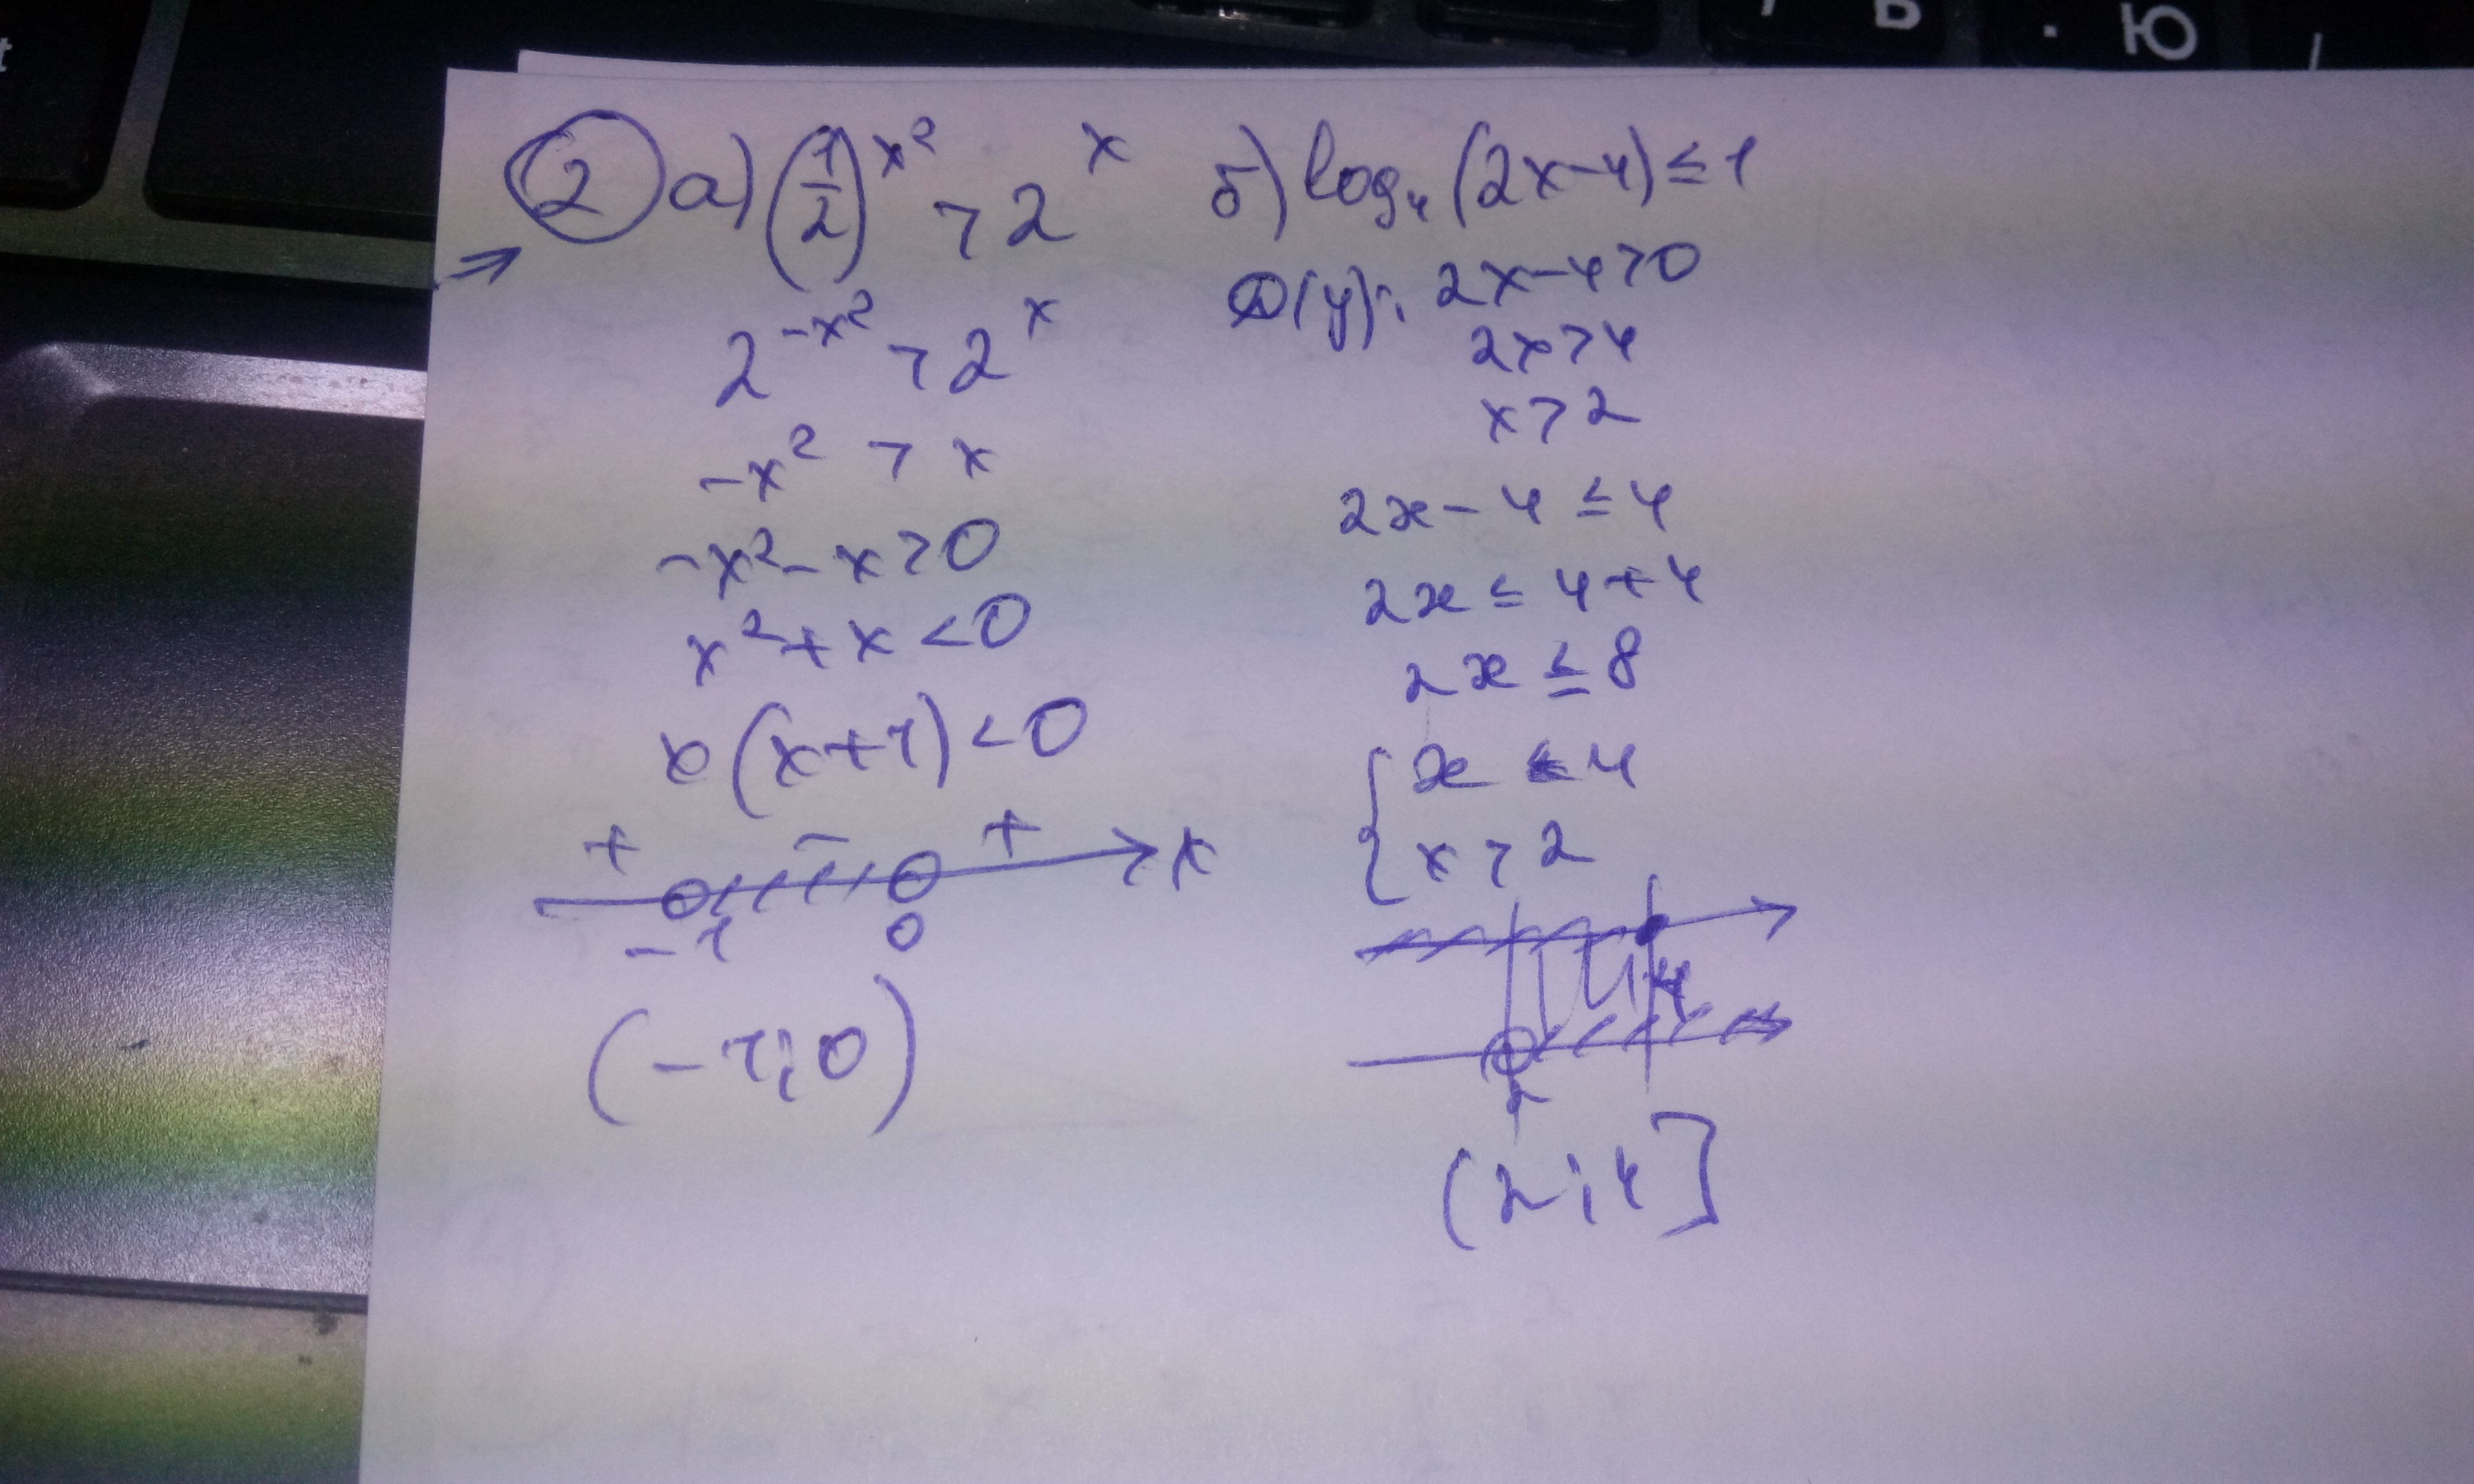 t
Ь
.
Ю
/
② а) (1/2)^x² > 2^x
2^-x² > 2^x
-x² > x
-x² - x > 0
x² + x < 0
x(x+1) < 0
+ - + x
-1 0
(-1; 0)
б) log₄(2x-4) ≤ 1
D(y): 2x-4>0
2x>4
x>2
2x - 4 ≤ 4
2x ≤ 4+4
2x ≤ 8
{ x ≤ 4
x > 2
4
2
(2; 4]